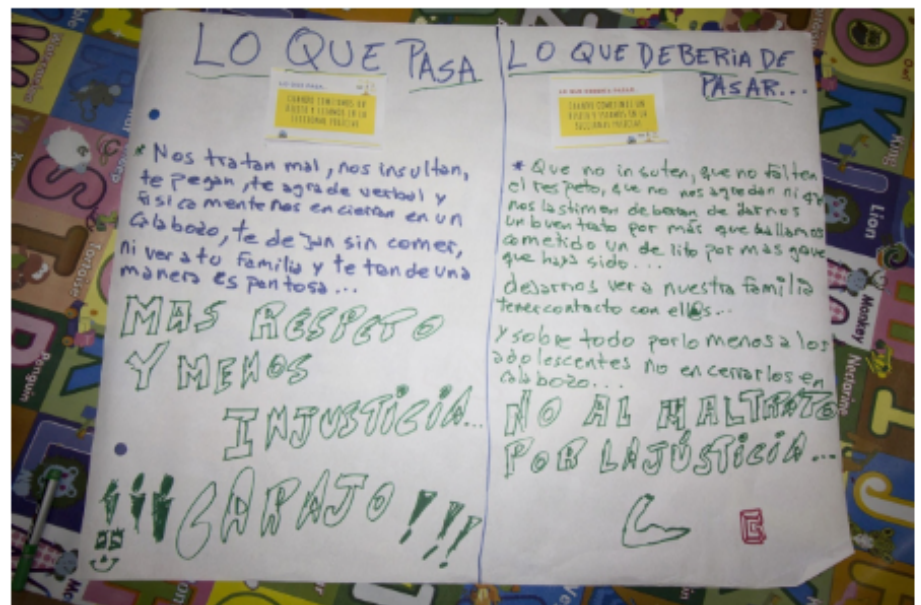 LO QUE PASA
LO QUE PASA...
CUANDO COMETEMOS UN
DELITO Y ESTAMOS EN LA
SECCIONAL POLICIAL
* Nos tratan mal, nos insultan,
te pegan, te agrade verbal y
fisicamente nos encierran en un
calabozo, te dejan sin comer,
ni ver a tu familia y te
manera espantosa...
MAS RESPETO
Y MENOS
INJUSTICIA...
¡¡¡CARAJO!!!
LO QUE DEBERIA DE
PASAR...
LO QUE DEBERIA PASAR...
CUANDO COMETEMOS UN
DELITO Y ESTAMOS EN LA
SECCIONAL POLICIAL
* Que no insuten, que no falten
el respeto, que no nos agredan ni que
nos lastimen deberan de darnos
un buen trato por más que hallamos
cometido un delito por mas gave
que haya sido...
dejarnos ver a nuestra familia
tener contacto con ell@s...
y sobre todo por lo menos a los
adolescentes no encerrarlos en
calabozo...
NO AL MALTRATO
POR LA JÚSTICIA...
Owl
King
Lion
Monkey
Nectarine
Penguin
Tortoise